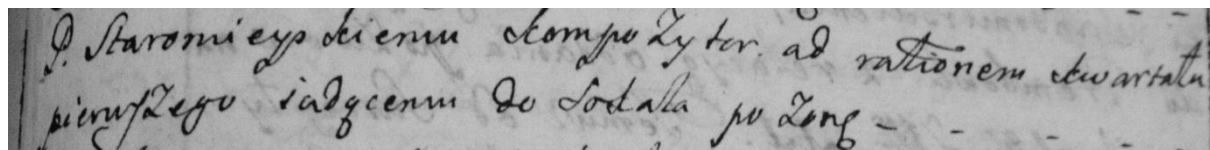 P. Staromieyskiemu kompozytor. ad rationem kwartału
pierwszego iadącemu do Sokala po Zonę - - - -